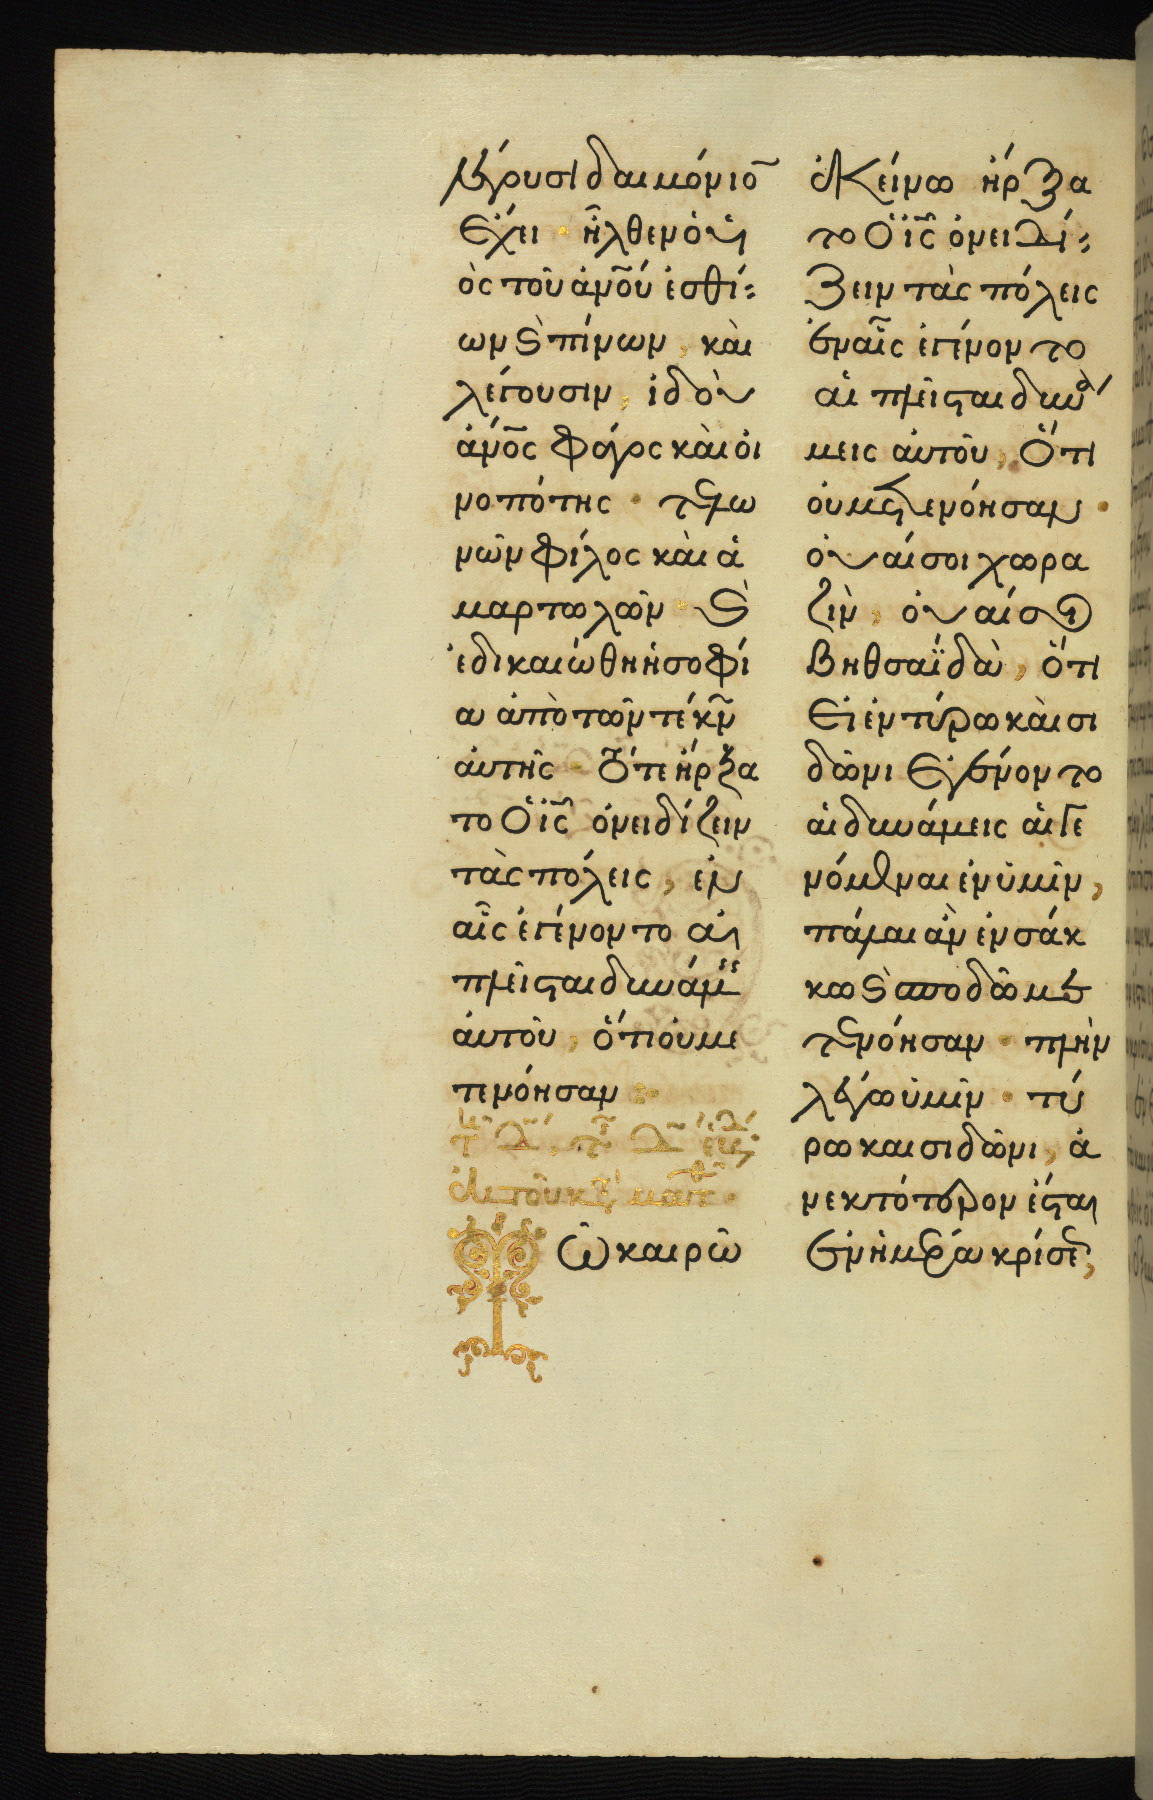 λέγουσι δαιμόνιο̅
ἔχει · ἦλθεν ὁ υἱ
ὸς τοῦ ἀν̅ο̅υ̅ ἐσθί
ων κ̀ πίνων, καὶ
λέγουσιν, ἰδοὺ
ἄν̅ο̅ς φάγος καὶ οἰ
νοπότης · τελω
νῶν φίλος καὶ ἁ
μαρτωλῶν · κ̀
ἐδικαιώθη ἡ σοφί
α ἀπὸ τῶν τέκν̅
αὐτῆς · Τότε ἤρξα
το ὁ ἰ̅ς̅ ὀνειδίζειν
τὰς πόλεις, ἐν
αἷς ἐγένοντο αἱ
πλεῖσται δυνάμ
αὐτοῦ, ὅτι οὐ με
τενόησαν
ἐκ τοῦ κτ̅ ματθ̅
Τῶ καιρῶ
ἐκείνω ἤρξα
το ὁ ἰ̅ς̅ ὀνειδί
ζειν τὰς πόλεις
ἐν αἷς ἐγένοντο
αἱ πλεῖσται δυνά
μεις αὐτοῦ, ὅτι
οὐ μετενόησαν ·
οὐαί σοι χωρα
ζὶν, οὐαί σοι
βηθσαϊδὰ, ὅτι
εἰ ἐν τύρω καὶ σι
δῶνι ἐγένοντο
αἱ δυνάμεις αἱ γε
νόμεναι ἐν ὑμῖν,
πάλαι ἂν ἐν σάκ
κω κ̀ σποδῶ με
τενόησαν · πλὴν
λέγω ὑμῖν · τύ
ρω και σιδῶνι, ἀ
νεκτότερον ἔσται
ἐν ἡμέρα κρίσε,